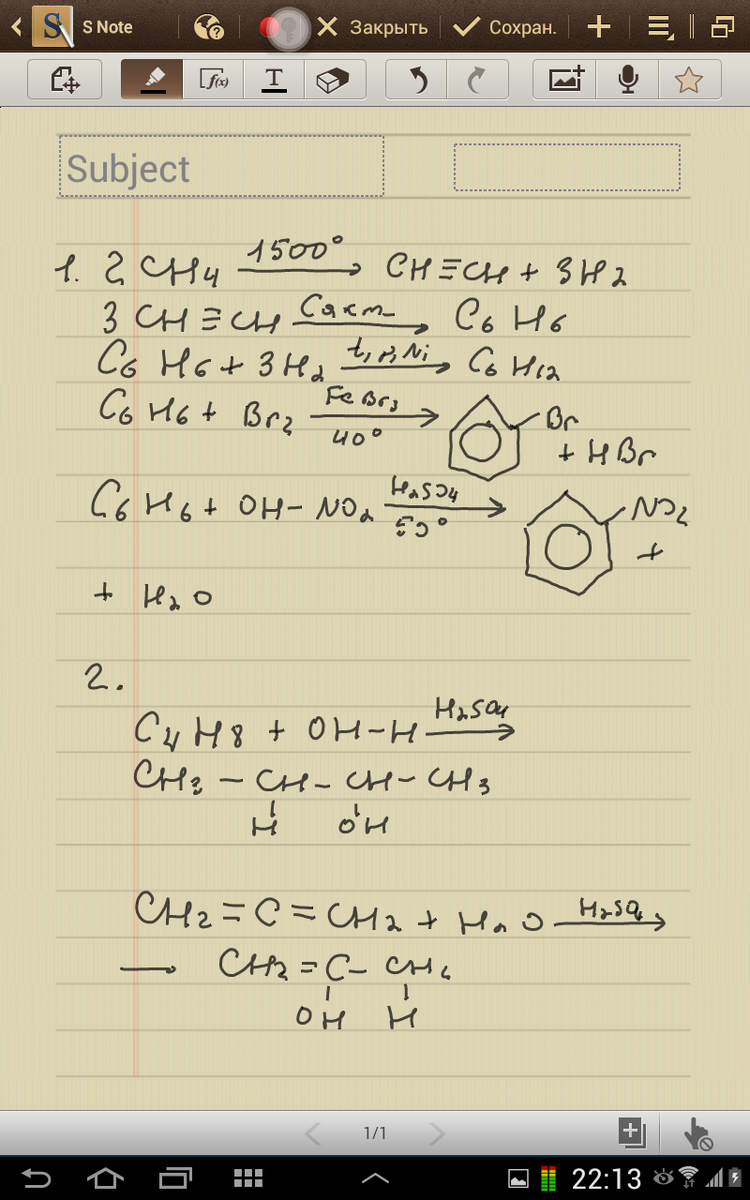 S Note
Закрыть
Сохран.
f(x)
T
Subject
1. 2 CH4 1500° → CH≡CH + 3H2
3 CH≡CH Cакт → C6H6
C6H6 + 3H2 t, p, Ni → C6H12
C6H6 + Br2 FeBr3 40° → Br + HBr
C6H6 + OH-NO2 H2SO4 50° → NO2 +
+ H2O
2.
C4H8 + OH-H H2SO4 →
CH3 - CH - CH - CH3
H OH
CH2 = C = CH2 + H2O H2SO4 →
— CH2 = C - CH2
OH H
1/1
22:13